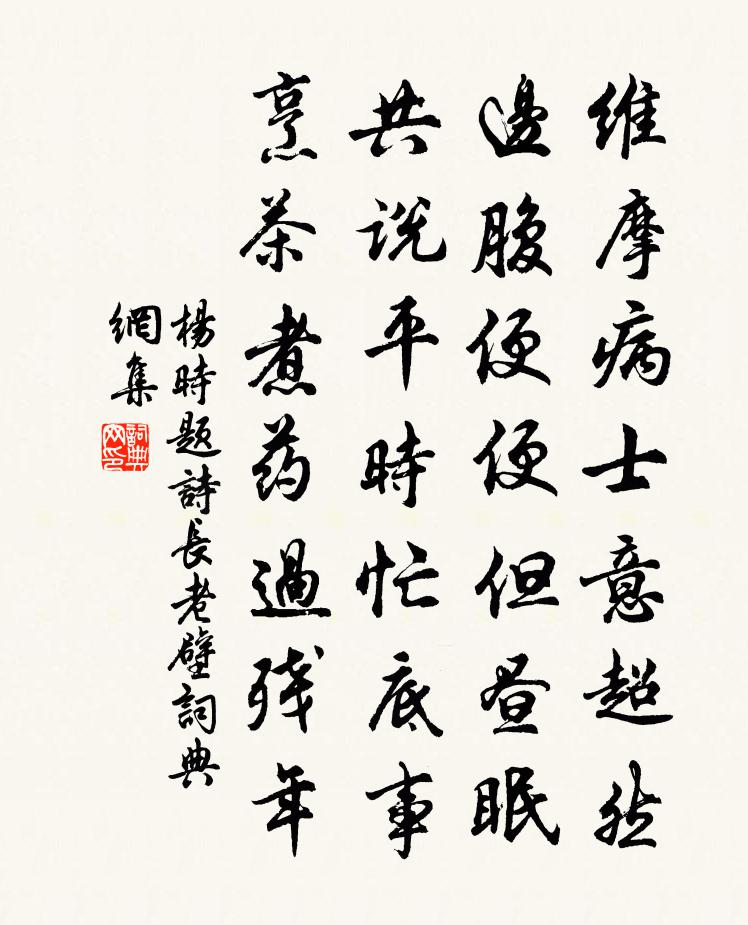 維摩病士意超然
邊腹便便但昼眠
共説平時忙底事
烹茶煮药過残年
楊時題詩長老壁詞典
網集
詞典
网印